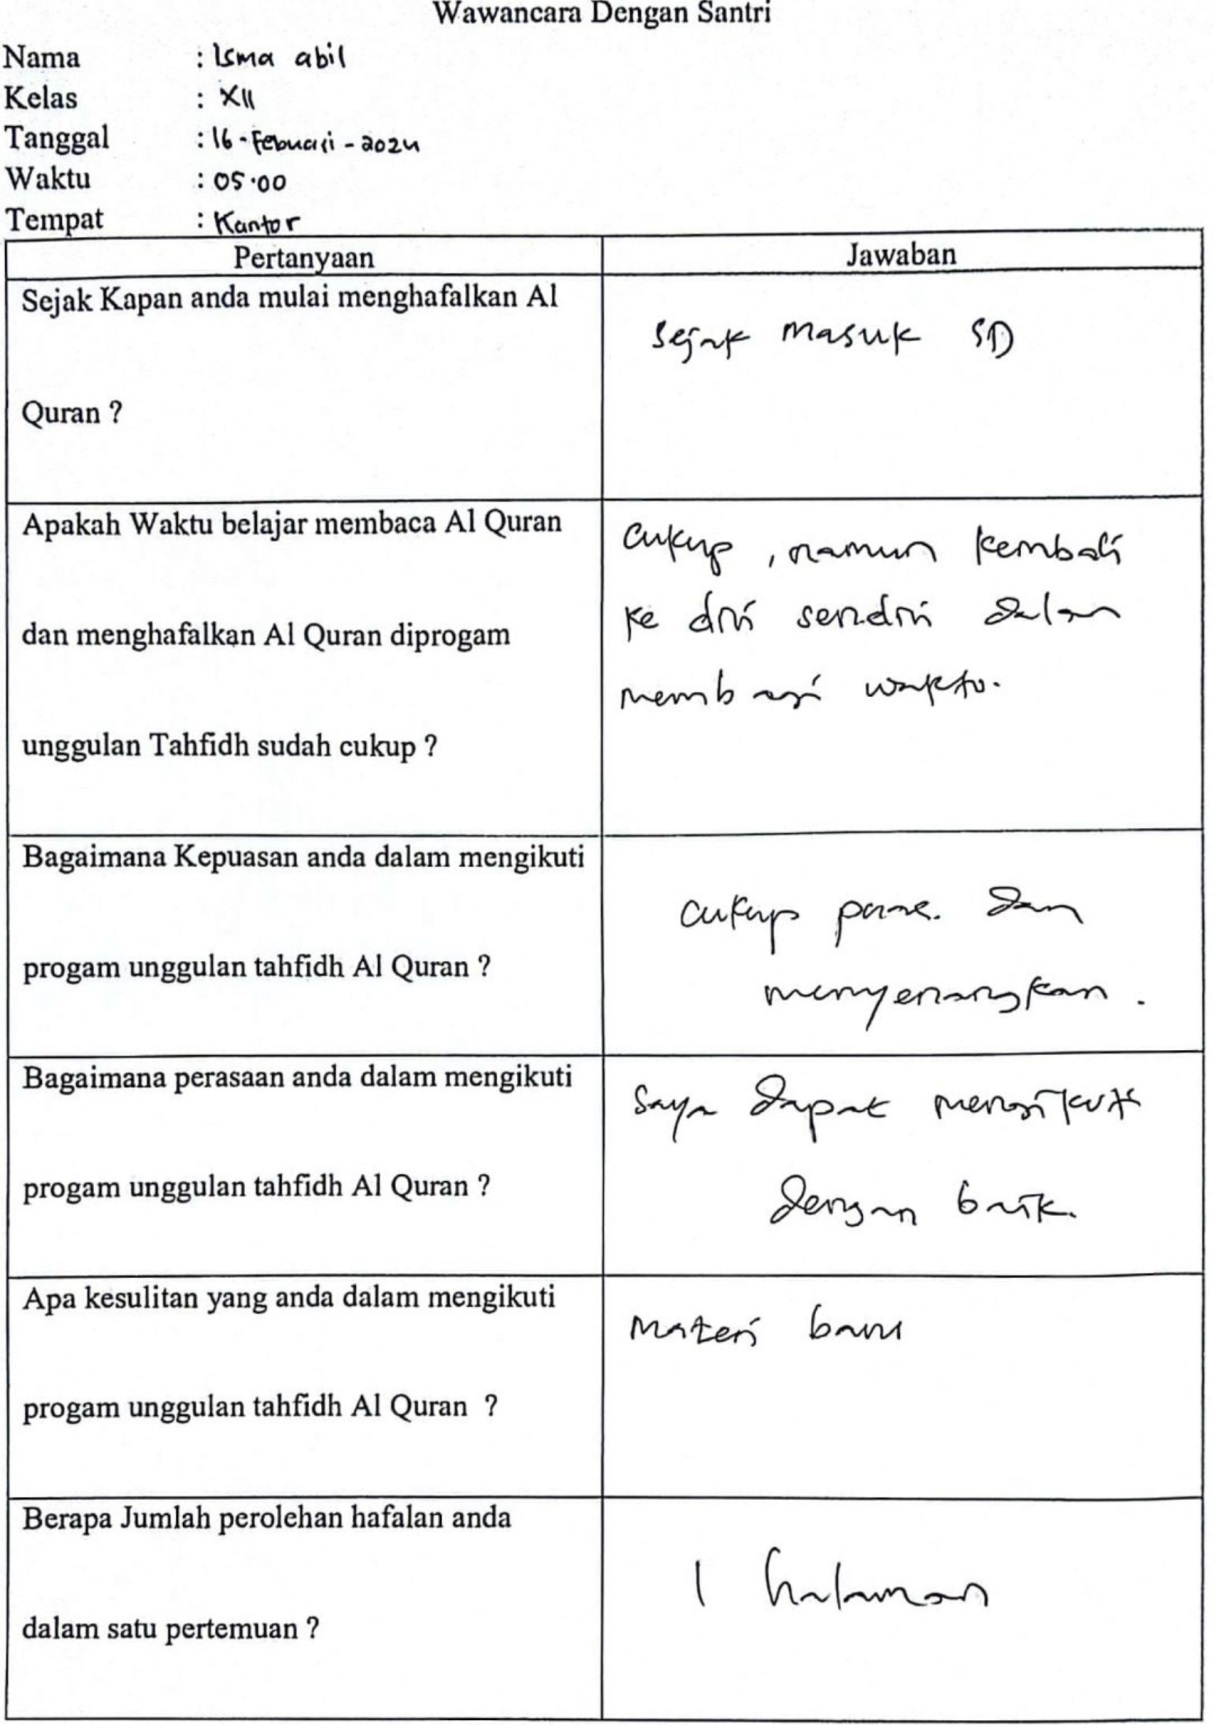 Wawancara Dengan Santri
Nama : Isma abil
Kelas : XII
Tanggal : 16-Februari-2024
Waktu : 05.00
Tempat : Kantor
Pertanyaan Jawaban
Sejak Kapan anda mulai menghafalkan Al
Quran ?
Sejak Masuk SD
Apakah Waktu belajar membaca Al Quran
dan menghafalkan Al Quran diprogam
unggulan Tahfidh sudah cukup ?
Cukup , namun kembali
ke diri sendiri dalam
membagi waktu.
Bagaimana Kepuasan anda dalam mengikuti
progam unggulan tahfidh Al Quran ?
cukup dan
menyenangkan .
Bagaimana perasaan anda dalam mengikuti
progam unggulan tahfidh Al Quran ?
Saya dapat mengikuti
dengan baik.
Apa kesulitan yang anda dalam mengikuti
progam unggulan tahfidh Al Quran ?
Materi baru
Berapa Jumlah perolehan hafalan anda
dalam satu pertemuan ?
1 halaman